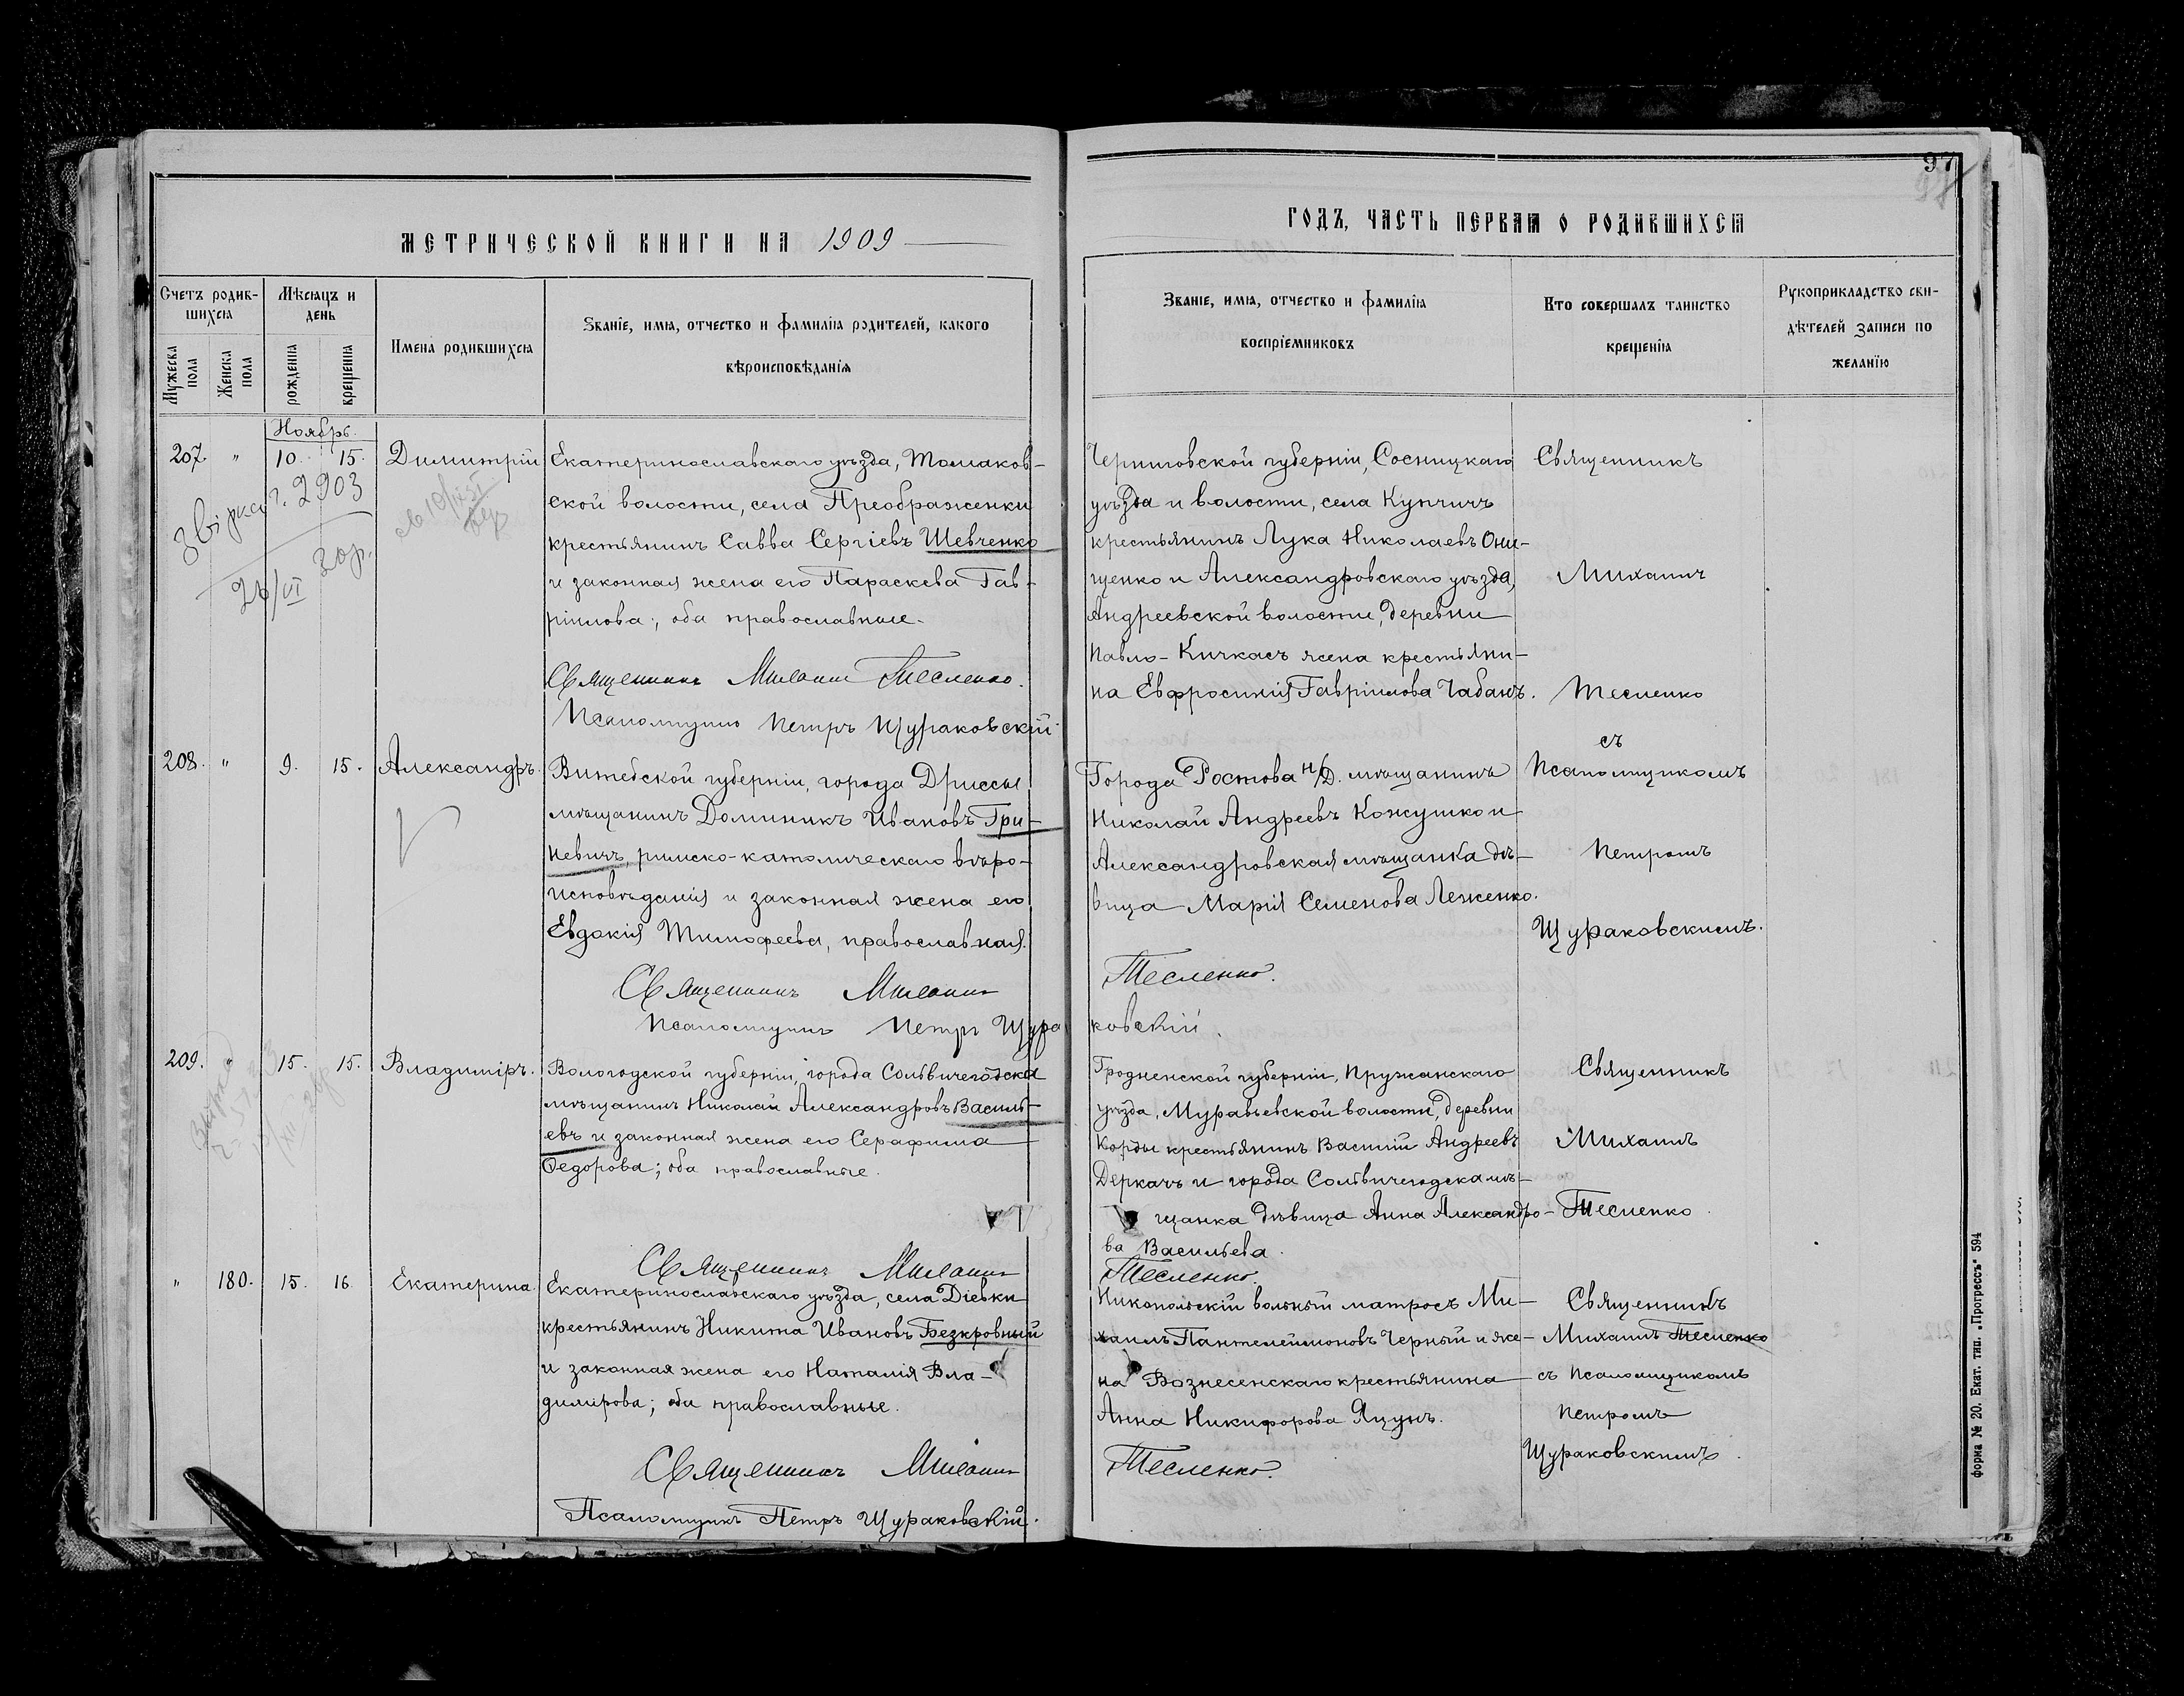 МЕТРИЧЕСКОЙ КНИГИ НА 1909
Счетъ родив-
шихся
Мѣсяцъ и
день
Мужеска пола
Женска пола
рожденія
крещенія
Имена родившихся
Званіе, имя, отчество и фамилія родителей, какого
вѣроисповѣданія
Ноябрь.
207. " 10. 15. Димитрій
Екатеринославскаго уѣзда, Томаков-
ской волости, села Преображенки
крестьянинъ Савва Сергіевъ Шевченко
и законная жена его Параскева Гав-
ріилова; оба православные.
Священникъ Михаилъ Тесленко.
Псаломщикъ Петръ Щураковскій.
Звірка
2903
26/VI 30р.
208. " 9. 15. Александръ.
Витебской губерніи, города Дриссы
мѣщанинъ Доминикъ Ивановъ Гри-
невичъ, римско-католическаго вѣро-
исповѣданія и законная жена его
Евдокія Тимофеева, православная.
Священникъ Михаилъ
Псаломщикъ Петръ Щура
209. " 15. 15. Владиміръ.
Вологодской губерніи, города Сольвичегодска
мѣщанинъ Николай Александровъ Василь-
евъ и законная жена его Серафима
Ѳедорова; оба православные.
Священникъ Михаилъ
" 180. 15. 16. Екатерина.
Екатеринославскаго уѣзда, села Діевки
крестьянинъ Никита Ивановъ Безкровный
и законная жена его Наталія Вла-
димірова; оба православные.
Священникъ Михаилъ
Псаломщикъ Петръ Щураковскій.
97
ГОДЪ, ЧАСТЬ ПЕРВАЯ О РОДИВШИХСЯ
Званіе, имя, отчество и фамилія
воспріемниковъ
Кто совершалъ таинство
крещенія
Рукоприкладство сви-
дѣтелей записи по
желанію
Черниговской губерніи, Сосницкаго
уѣзда и волости, села Купчичъ
крестьянинъ Лука Николаевъ Они-
щенко и Александровскаго уѣзда,
Андреевской волости, деревни
Павло-Кичкасъ жена крестьяни-
на Евфросинія Гавріилова Чабанъ.
Священникъ
Михаилъ
Тесленко
съ
Псаломщикомъ
Петромъ
Щураковскимъ.
Города Ростова н/Д. мѣщанинъ
Николай Андреевъ Кожушко и
Александровская мѣщанка дѣ-
вица Марія Семенова Леженко.
Тесленко.
ковскій.
Гродненской губерніи, Пружанскаго
уѣзда, Муравьевской волости, деревни
Корды крестьянинъ Василій Андреевъ
Деркачъ и города Сольвичегодска мѣ-
щанка дѣвица Анна Александро-
ва Васильева.
Тесленко.
Священникъ
Михаилъ
Тесленко.
Никопольскій вольный матросъ Ми-
хаилъ Пантелеймоновъ Черный и же-
на Вознесенскаго крестьянина
Анна Никифорова Яцунъ.
Тесленко.
Священникъ
Михаилъ Тесленко
съ Псаломщикомъ
Петромъ
Щураковскимъ.
форма № 20. Екат. тип. „Прогрессъ" 594